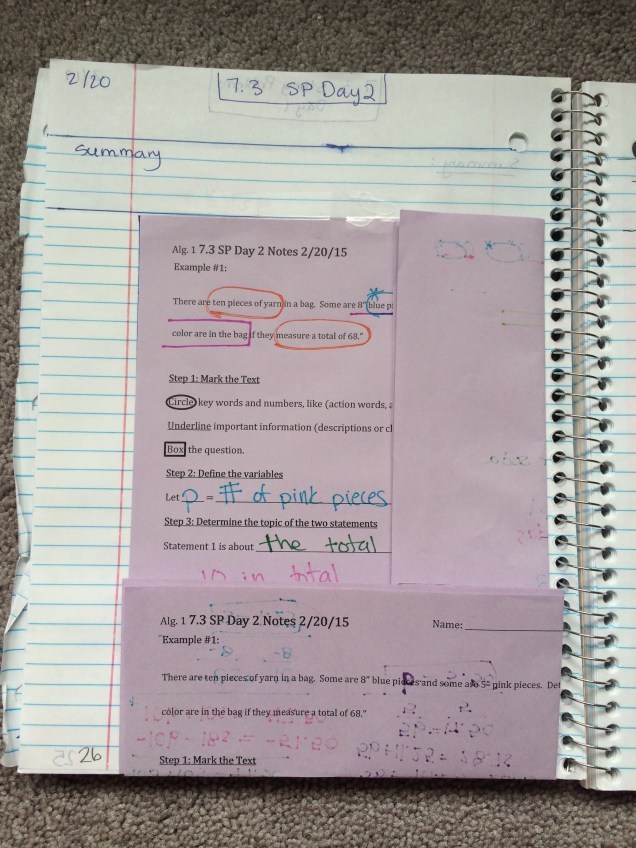 2/20
7.3 SP Day 2
Summary
Alg. 1 7.3 SP Day 2 Notes 2/20/15
Example #1:
There are ten pieces of yarn in a bag. Some are 8" blue pi
color are in the bag if they measure a total of 68."
Step 1: Mark the Text
Circle key words and numbers, like (action words, a
Underline important information (descriptions or cl
Box the question.
Step 2: Define the variables
Let p = # of pink pieces
Step 3: Determine the topic of the two statements
Statement 1 is about the total
10 in total
Alg. 1 7.3 SP Day 2 Notes 2/20/15 Name:
Example #1:
There are ten pieces of yarn in a bag. Some are 8" blue pieces and some are 5" pink pieces. Det
color are in the bag if they measure a total of 68."
Step 1: Mark the Text
26